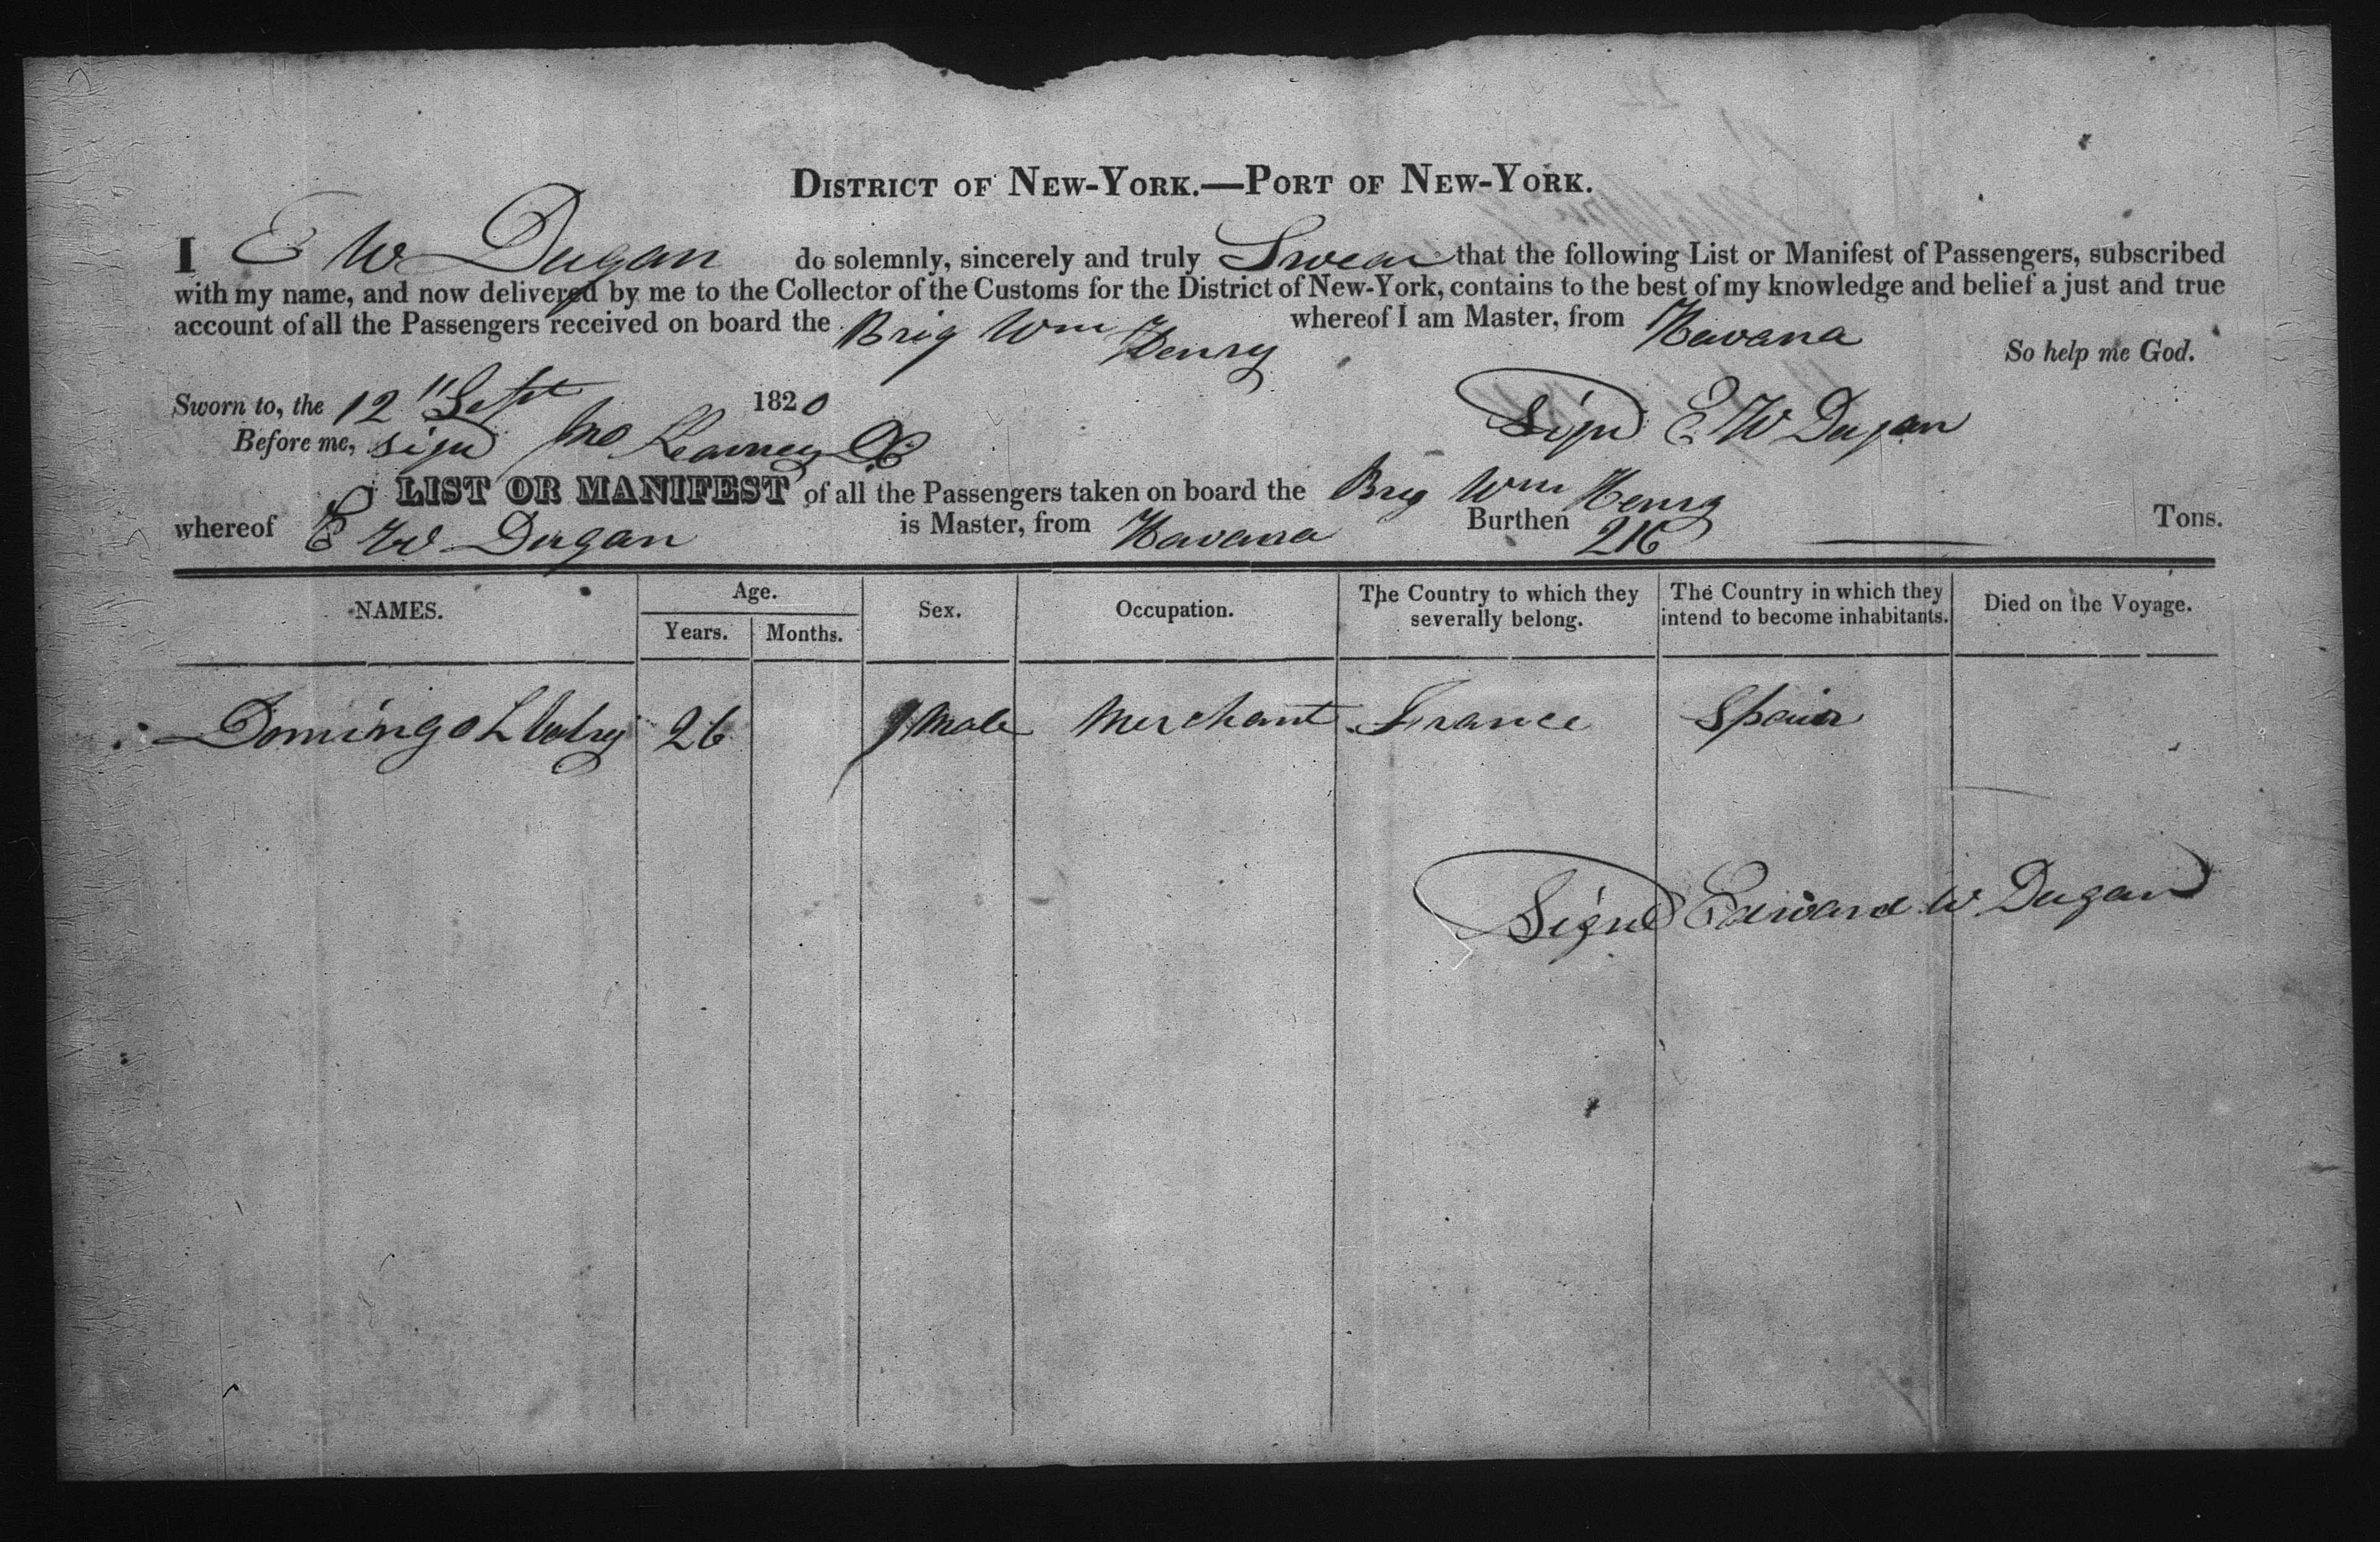 DISTRICT OF NEW-YORK.—PORT OF NEW-YORK.
I E W Dugan do solemnly, sincerely and truly Swear that the following List or Manifest of Passengers, subscribed
with my name, and now delivered by me to the Collector of the Customs for the District of New-York, contains to the best of my knowledge and belief a just and true
account of all the Passengers received on board the Brig Wm Henry whereof I am Master, from Havana
So help me God.
Sworn to, the 12" Sept 1820
Before me, sign Jno Kearney
Sign E W Dugan
LIST OR MANIFEST of all the Passengers taken on board the Brig Wm Henry
whereof E W Dugan is Master, from Havana Burthen 216 Tons.
NAMES. Age. Years. Months. Sex. Occupation. The Country to which they severally belong. The Country in which they intend to become inhabitants. Died on the Voyage.
Domingo 26 Male Merchant France Spain
Signd Edward W Dugan